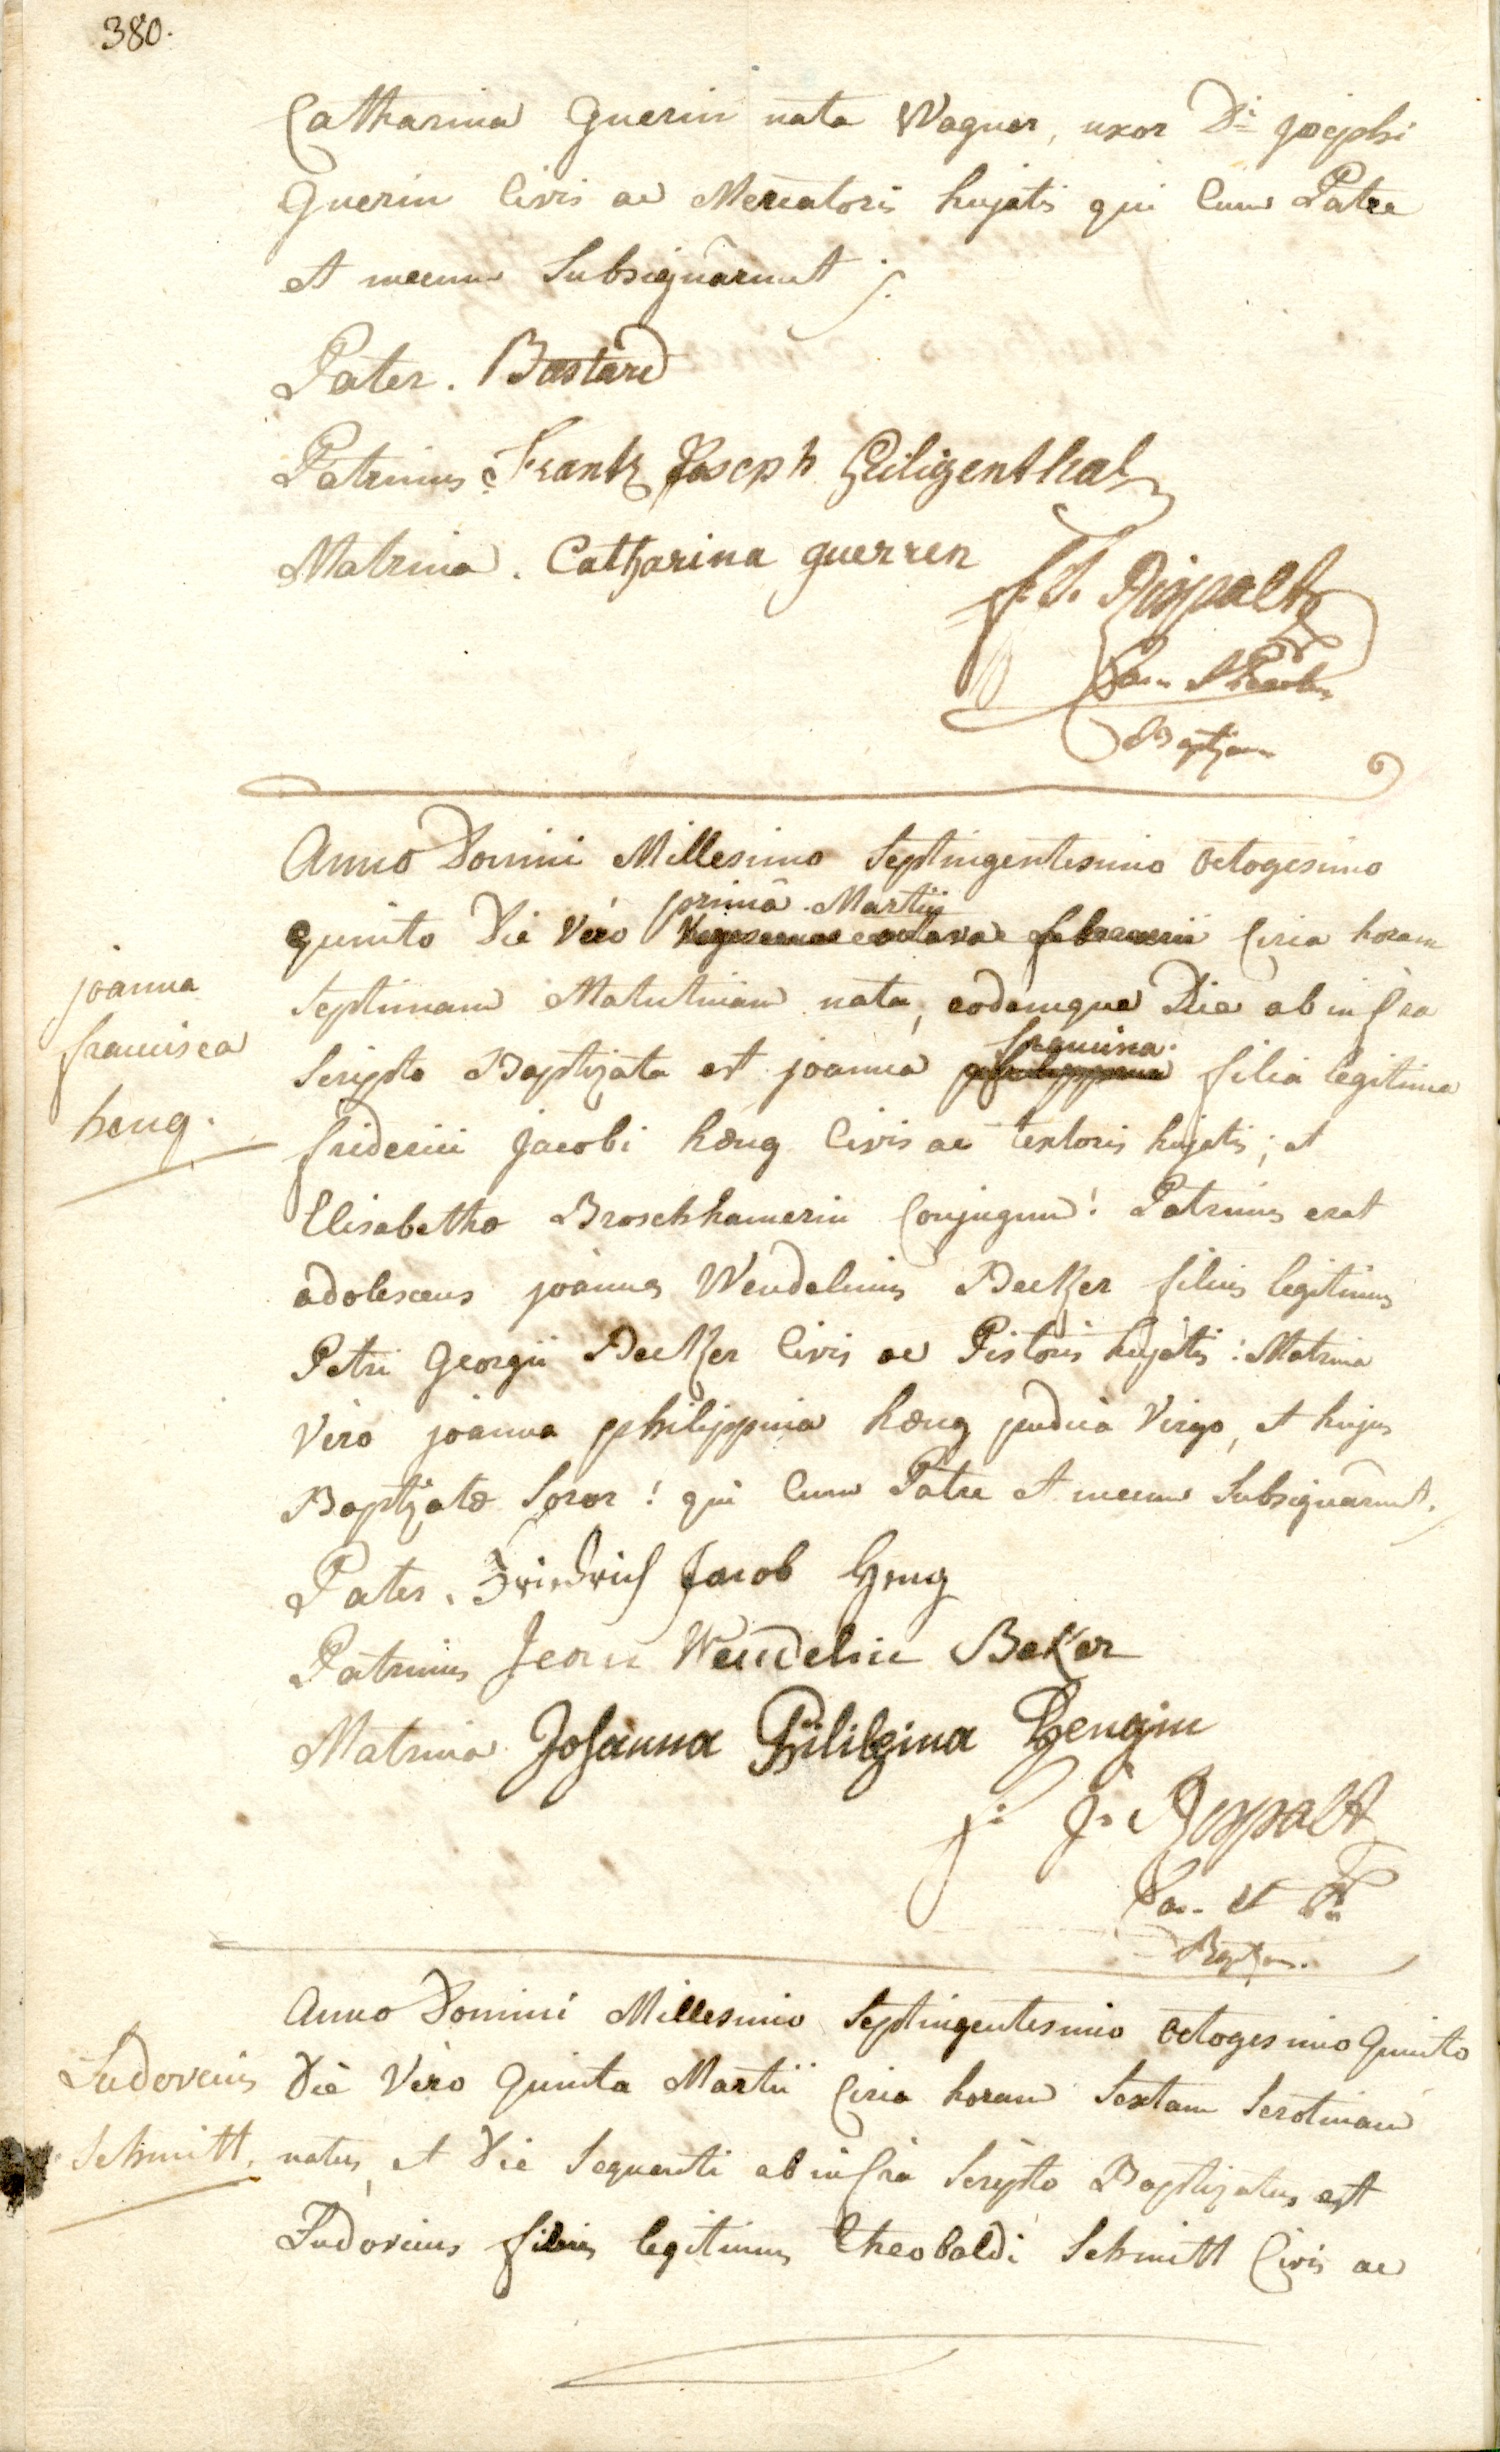 380.
Catharina Guerin nata Wagner, uxor Di josephi
Guerin Civis ac Mercatoris hujatis qui Cum Patre
et mecum Subsignârunt ;.
Pater. Bastard
Patrinus. Frantz Joseph Heiligenthal
Matrina. Catharina guerren
f. J. Rispalt
Can. et
Baptizans
Anno Domini Millesimo Septingentesimo octogesimo
primâ Martii
quinto Die Vero Vigesima octava februarii Circa horam
Septimam Matutinam nata, eodemque Die ab infra
francisca.
Scripto Baptizata est joanna philippina filia legitima
friderici jacobi hæng Civis ac textoris hujatis; et
Elisabetha Broschhamerin Conjugum! Patrinus erat
adolescens joannes Wendelinus Becker filius legitimus
Petri Georgii Becker Civis ac Pistoris hujatis: Matrina
Vero joanna philippina hæng pudica Virgo, et hujus
Baptizatæ Soror! qui Cum Patre et mecum Subsignârunt.
Pater. Friedrich Jacob Heng
Patrinus Jean Wendelin Beker
Matrina. Johanna Philibina Hengin
f: J. Rispalt
Can. et
Baptizans.
joanna
francisca
heng.
Anno Domini Millesimo Septingentesimo octogesimo Quinto
Die Vero Quinta Martii Circa horam Sextam Serotinam
natus, et Die Sequenti ab infrà Scripto Baptizatus est
Ludovicus filius legitimus Theobaldi Schmitt Civis ac
Ludovicus
Schmitt.